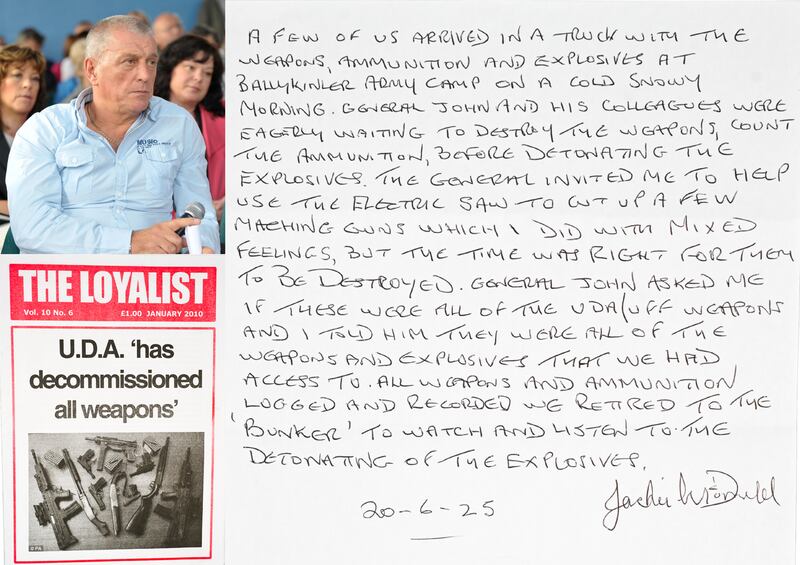 THE LOYALIST
Vol. 10 No. 6 £1.00 JANUARY 2010
U.D.A. 'has
decommissioned
all weapons'
© PA
A FEW OF US ARRIVED IN A TRUCK WITH THE
WEAPONS, AMMUNITION AND EXPLOSIVES AT
BALLYKINLER ARMY CAMP ON A COLD SNOWY
MORNING. GENERAL JOHN AND HIS COLLEAGUES WERE
EAGERLY WAITING TO DESTROY THE WEAPONS, COUNT
THE AMMUNITION, BEFORE DETONATING THE
EXPLOSIVES. THE GENERAL INVITED ME TO HELP
USE THE ELECTRIC SAW TO CUT UP A FEW
MACHING GUNS WHICH I DID WITH MIXED
FEELINGS, BUT THE TIME WAS RIGHT FOR THEM
TO BE DESTROYED. GENERAL JOHN ASKED ME
IF THESE WERE ALL OF THE UDA/UFF WEAPONS
AND I TOLD HIM THEY WERE ALL OF THE
WEAPONS AND EXPLOSIVES THAT WE HAD
ACCESS TO. ALL WEAPONS AND AMMUNITION
LOGGED AND RECORDED WE RETIRED TO THE
'BUNKER' TO WATCH AND LISTEN TO THE
DETONATING OF THE EXPLOSIVES.
Jackie McDonald
20-6-25